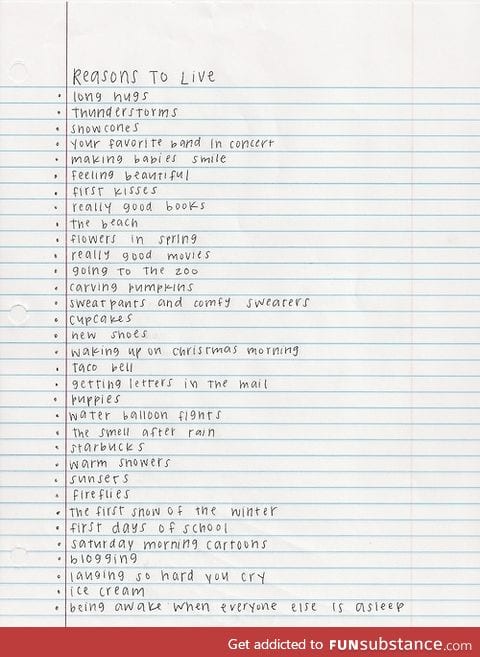 Reasons To Live
• long hugs
• thunderstorms
• snowcones
• your favorite band in concert
• making babies smile
• feeling beautiful
• first kisses
• really good books
• the beach
• flowers in spring
• really good movies
• going to the zoo
• carving pumpkins
• sweatpants and comfy sweaters
• cupcakes
• new shoes
• waking up on christmas morning
• taco bell
• getting letters in the mail
• puppies
• water balloon fights
• the smell after rain
• starbucks
• warm showers
• sunsets
• fireflies
• the first snow of the winter
• first days of school
• saturday morning cartoons
• blogging
• lauging so hard you cry
• ice cream
• being awake when everyone else is asleep
Get addicted to FUNsubstance.com